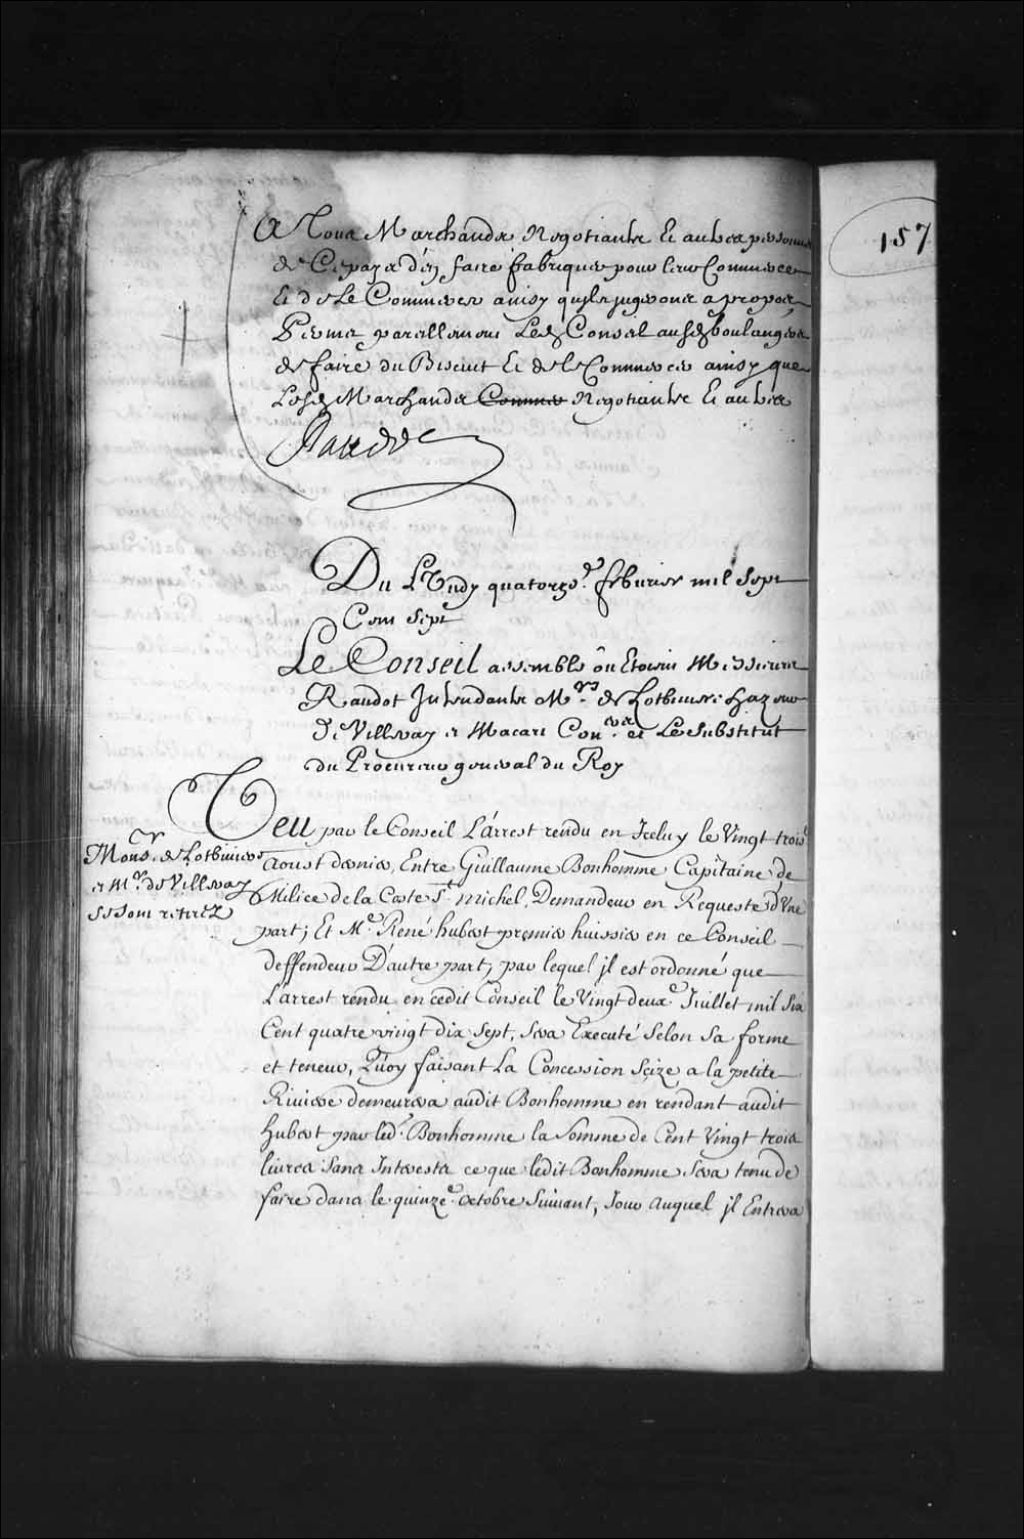 157
A Tous Marchands Negotiants Et autres personnes
de Ce pays d'en faire fabriquer pour leur Commerce
Et de Le Commercer ainsy quils jugeront a propos
Permet pareillement Led Conseil ausd boulangers
de faire du Biscuit Et de le Commercer ainsy que
Lesd Marchands Comme Negotiants Et autres
Raudot
Du Lundy quatorze.e feburier mil sept
Cent sept
Le Conseil assemblé ôu Etoient Messieurs
Raudot Intendants Mrs. de Lotbiniere hazeur
De Villeray et Macart Con.ers et Le substitut
du Procureur general du Roy
Veu par le Conseil L'arrest rendu en Iceluy le Vingt trois.e
Monsr. de Lotbiniere
et Mr. de Villeray
se sont retirez
Aoust dernier, Entre Guillaume Bonhomme Capitaine de
Milice de la Coste St. Michel, Demandeur en Requeste d'Une
part; Et Me. René hubert premier huissier en ce Conseil
deffendeur D'autre part, par lequel il est ordonné que
L'arrest rendu en cedit Conseil le Vingt deux.e Juillet mil Six
Cent quatre vingt dix Sept, sera Executé selon sa forme
et teneur, Quoy faisant La Concession Seize a la petite
Riviere demeurera audit Bonhomme en rendant audit
hubert par led. Bonhomme la somme de Cent Vingt trois
livres sans Interests ce que ledit Bonhomme sera tenu de
faire dans le quinze.e octobre Suivant, Jour Auquel il Entrera